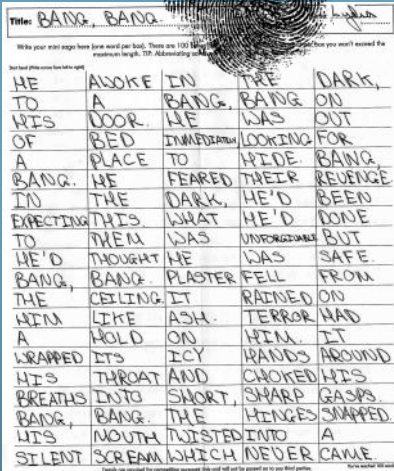 Title: BANG, BANG.
Write your mini saga here (one word per box). There are 100
that you won't exceed the
maximum length. TIP: Abbreviating
Start here! (Write across from left to right)
HE AWOKE IN THE DARK,
TO A BANG, BANG ON
HIS DOOR. HE WAS OUT
OF BED IMMEDIATELY LOOKING FOR
A PLACE TO HIDE. BANG,
BANG. HE FEARED THEIR REVENGE.
IN THE DARK, HE'D BEEN
EXPECTING THIS. WHAT HE'D DONE
TO THEM WAS UNFORGIVABLE BUT
HE'D THOUGHT HE WAS SAFE.
BANG, BANG. PLASTER FELL FROM
THE CEILING. IT RAINED ON
HIM LIKE ASH. TERROR HAD
A HOLD ON HIM. IT
WRAPPED ITS ICY HANDS AROUND
HIS THROAT AND CHOKED HIS
BREATHS INTO SHORT, SHARP GASPS.
BANG, BANG. THE HINGES SNAPPED.
HIS MOUTH TWISTED INTO A
SILENT SCREAM WHICH NEVER CAME.